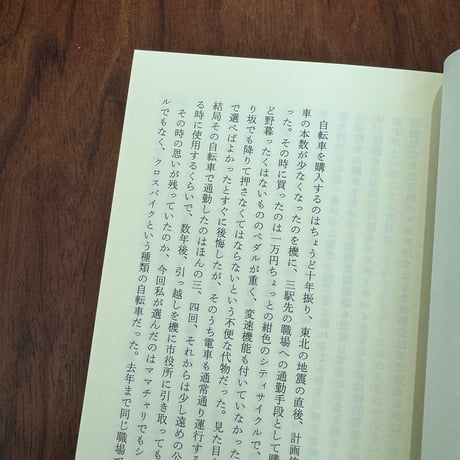 自転車を購入するのはちょうど十年振り、東北の地震の直後、計画停
車の本数が少なくなったのを機に、三駅先の職場への通勤手段として購
った。その時に買ったのは一万円ちょっとの紺色のシティサイクルで、
ど野暮ったくはないもののペダルが重く、変速機能も付いていなかった
り坂でも降りて押さなくてはならないという不便な代物だった。見た目
で選べばよかったとすぐに後悔したが、そのうち電車も通常通り運行する
結局その自転車で通勤したのはほんの三、四回、それからは少し遠めの公
る時に使用するくらいで、数年後、引っ越しを機に市役所に引き取っても
その時の思いが残っていたのか、今回私が選んだのはママチャリでもシ
ルでもなく、クロスバイクという種類の自転車だった。去年まで同じ職場で